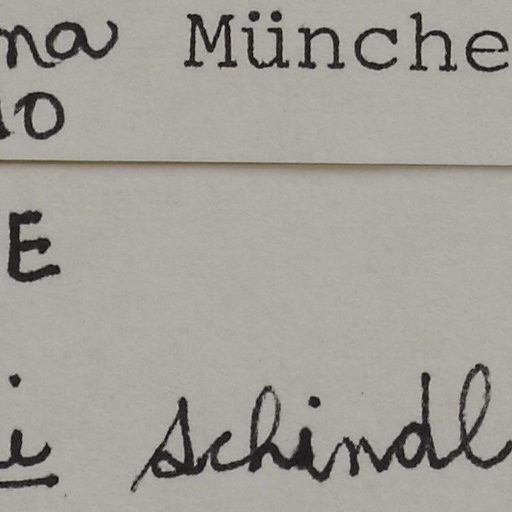 na Münche
10
E
i Schindl